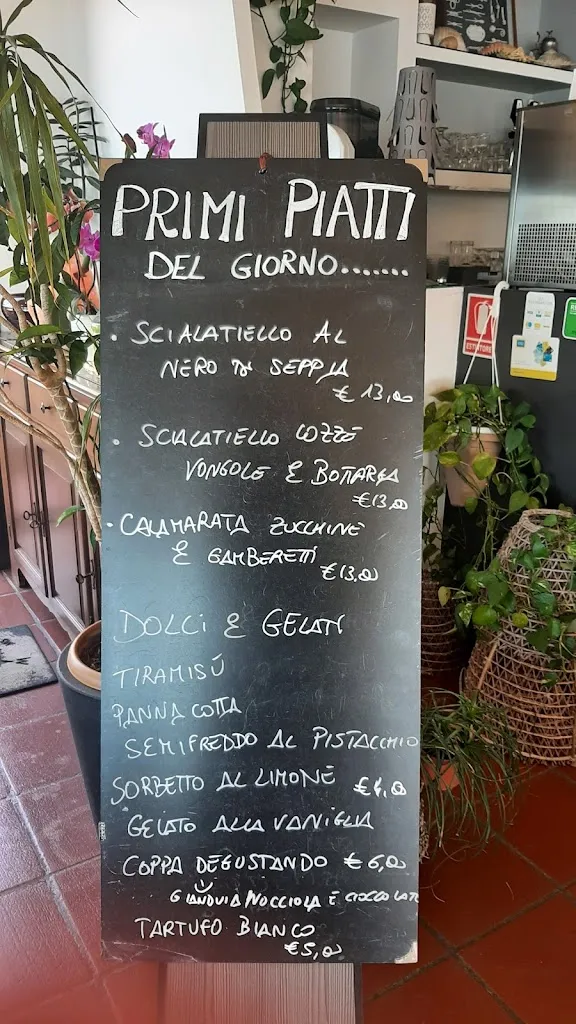 PRIMI PIATTI
DEL GIORNO.......
• SCIALATIELLO AL
NERO DI SEPPIA
€ 13,00
• SCIALATIELLO COZZE
VONGOLE E BOTTARGA
€ 13,00
• CALAMARATA ZUCCHINE
E GAMBERETTI
€ 13,00
DOLCI E GELATI
TIRAMISÚ
PANNA COTTA
SEMIFREDDO AL PISTACCHIO
SORBETTO AL LIMONE € 4,00
GELATO ALLA VANIGLIA
COPPA DEGUSTANDO € 6,00
GIANDUIA NOCCIOLA E CIOCCOLATO
TARTUFO BIANCO
€ 5,00
ESTINTORE